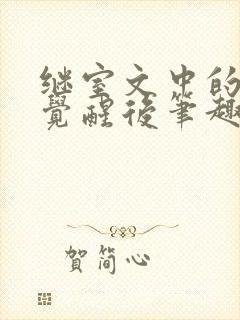 继室文中的
觉醒后笔趣
贺简心